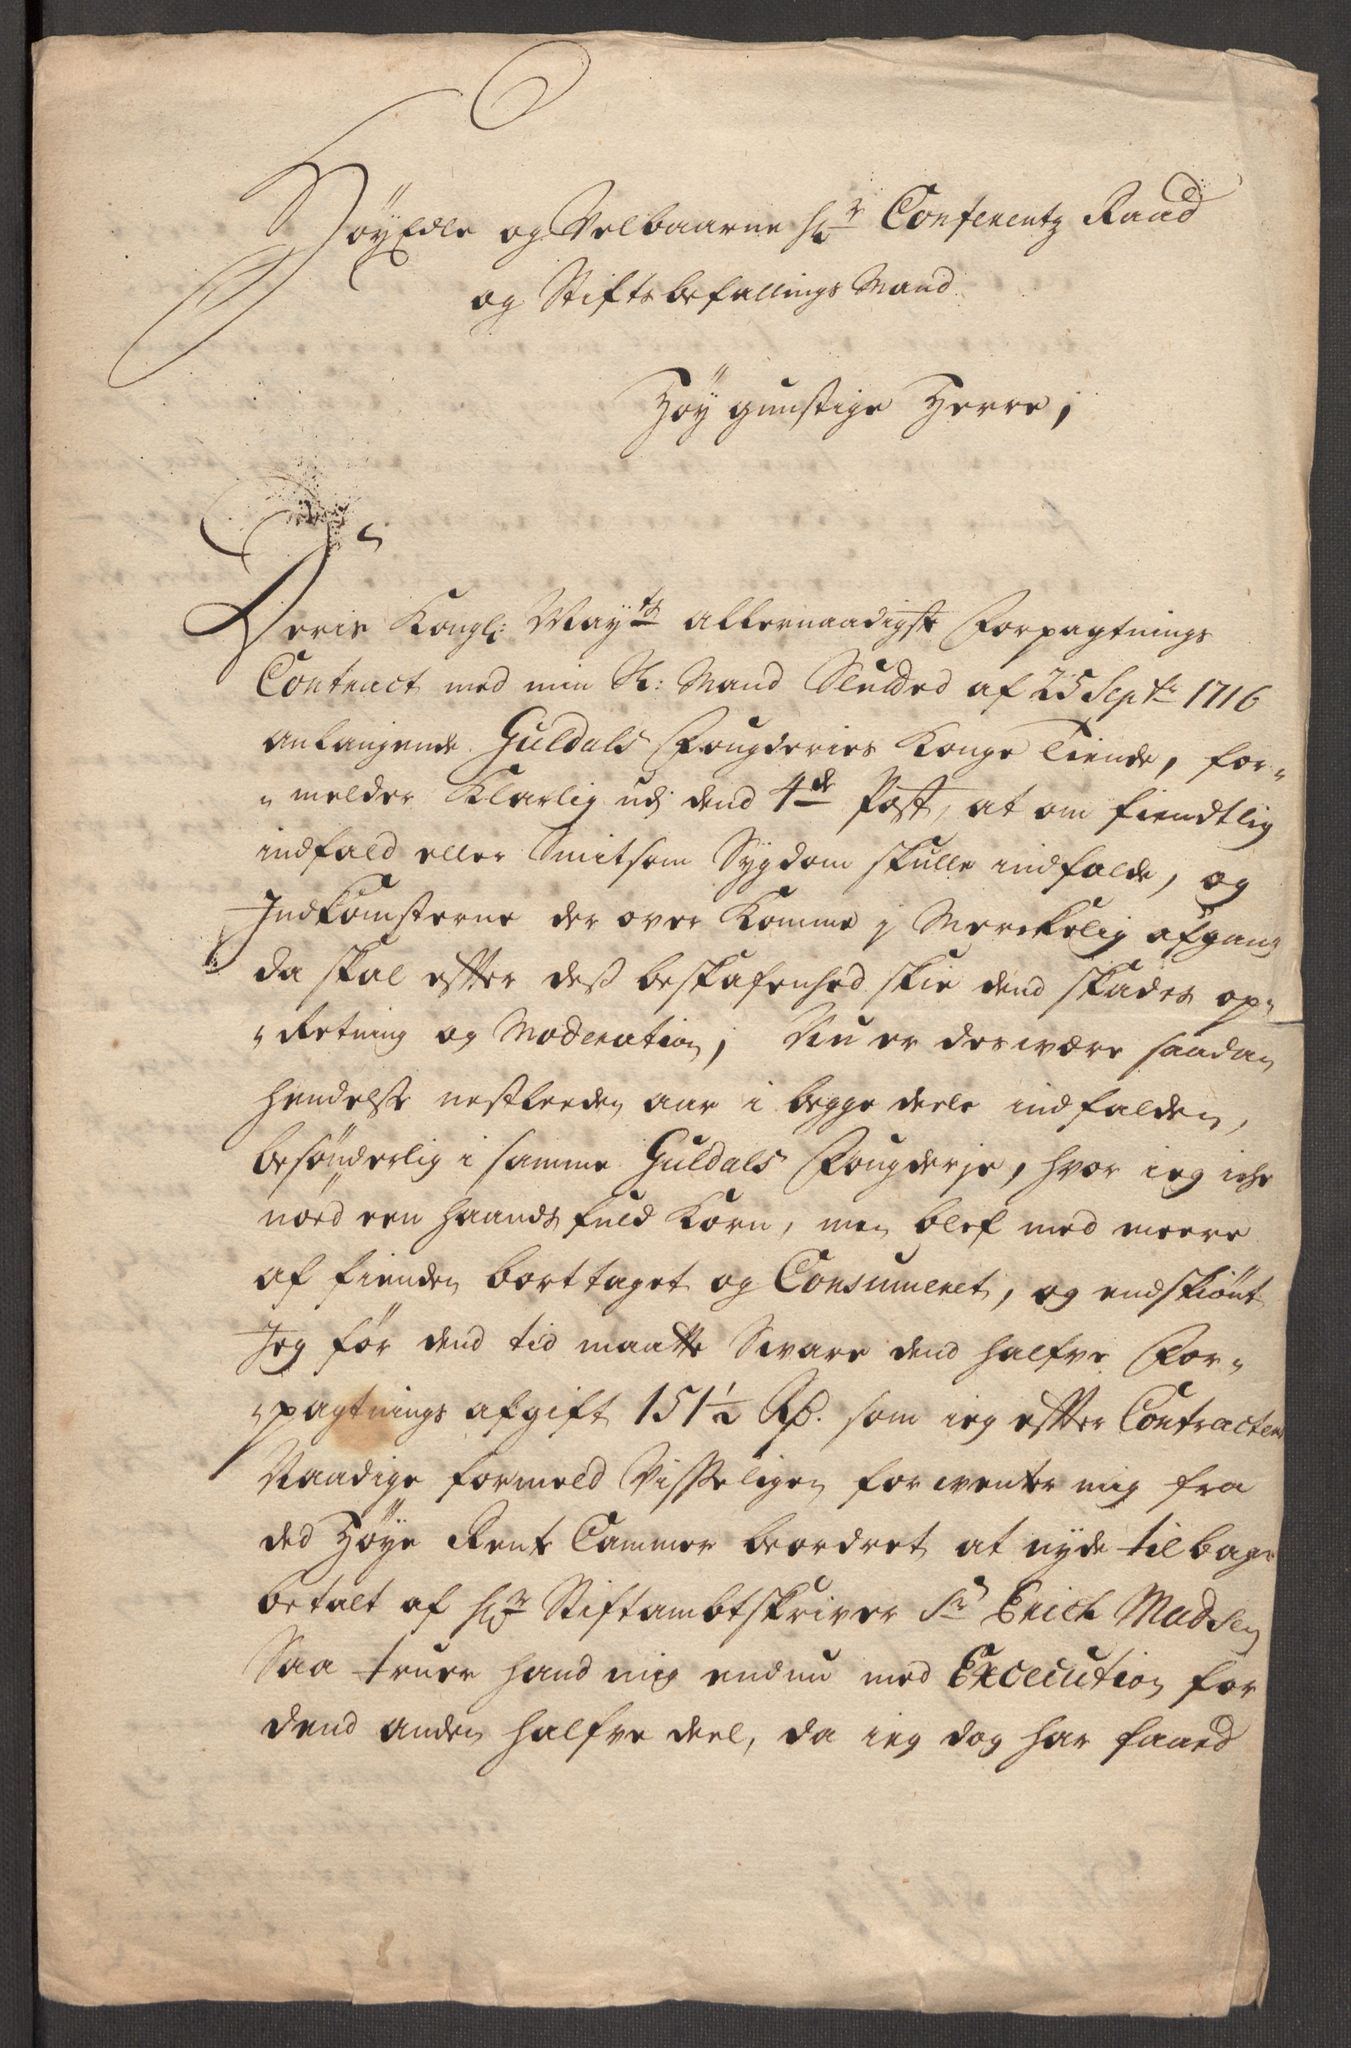 HöyEdle og Velbaarne Hr Conferentz Raad
og Stiftsbefallings Mand
Höy gunstige Herre,
Deris Kongl: Mayts allernaadigste Forpagtnings
Contract med min Sl: Mand Slutted af 25 Septr 1716
anlangende Guldals Fougderies Konge Tiende, for-
-melder Klarlig udj dend 4de Post, at om fiendtlig
indfald eller Smitsom Sygdom skulle indfalde, og
Indkomsterne der over komme j Merckelig afgang
da skal efter dess beskafenhed skie dend skades op-
-Retning og Moderation; Nu er desverre saadan
hendelse nestleeden aar i begge deele indfalden,
besönderlig i samme Guldals Fougderje, hvor ieg iche
nöed een haandsfuld Korn, men blef med meere
af fienden borttaget og Consumeret, og endskiönt
Jeg för dend tid maatte Svare dend halfve For-
-pagtnings afgift 151½ Rd. som ieg efter Contractens
Naadige formeld Visseligen forventer mig fra
ded Höye Rente Cammer beordret at nyde tilbage
betalt af Hr Stiftambtskriver Sr Erich Madsen
Saa truer hand mig endnu med Execution for
dend anden halfve deel, da ieg dog har faaed